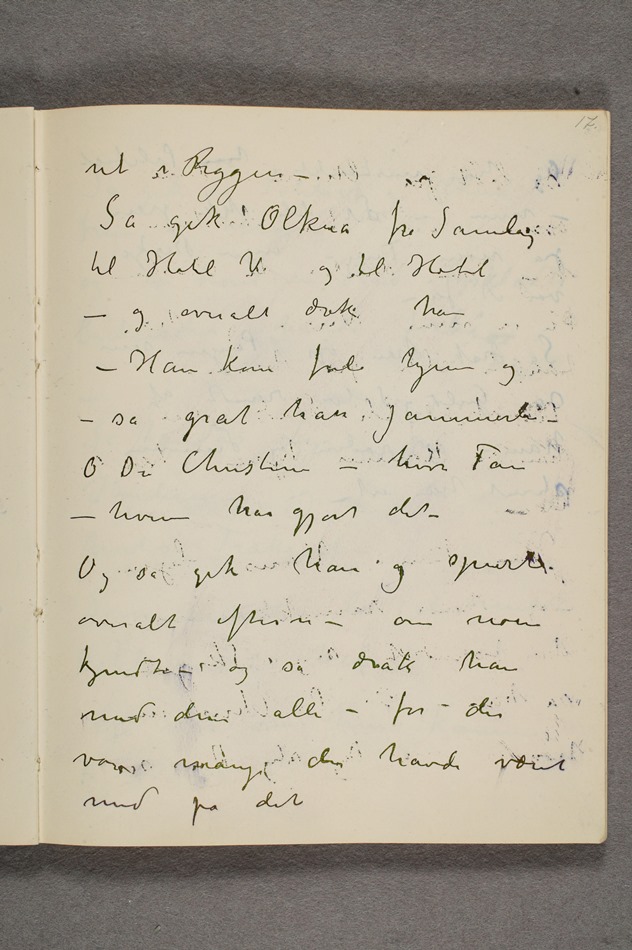 17.
ut i Byggen –
Så gik Olkna fra Samlag
til Hotel U og til Hotel
– og overalt drak han
– Han kom fuld hjem og
– så gråt han jammerte –
O Du Christine – hvor Fan
– hvem har gjort det –
Og så gik han og spurte
overalt efter – om noen
kjendte – og så drak han
med dem alle – for der
var mange der havde været
med på det